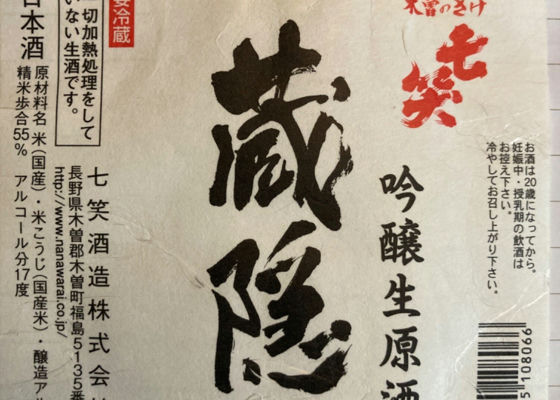 木曽のさけ
七笑
お酒は20歳になってから。
妊娠中・授乳期の飲酒は
お控え下さい。
冷やしてお召し上がり下さい。
吟醸生原酒
蔵隠
要冷蔵
一切加熱処理をして
いない生酒です。
七笑酒造株式会
長野県木曽郡木曽町福島5135番
http://www.nanawarai.co.jp/
日本酒
原材料名 米(国産)・米こうじ(国産米)・醸造アル
精米歩合55% アルコール分17度
5108066